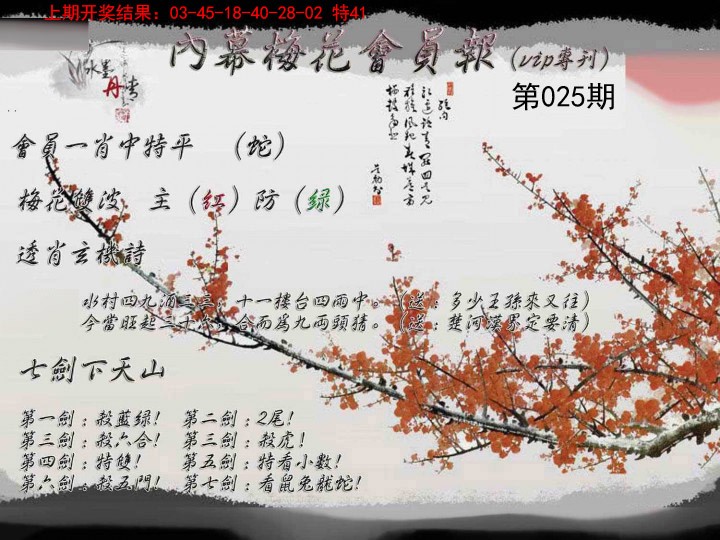 上期开奖结果：03-45-18-40-28-02 特41
內幕梅花會員報(vip專刊)
第025期
水墨
丹情
會員一肖中特平 （蛇）
梅花雙波 主（红）防（绿）
透肖玄機詩
水村四九酒三三：十一楼台四雨中。（送：多少王孫來又往）
今當旺起二十六：合而為九两頭猜。（送：楚河漢界定要清）
七劍下天山
第一劍：殺藍绿! 第二劍：2尾!
第三劍：殺六合! 第三劍：殺虎!
第四劍：特雙! 第五劍：特看小數!
第六劍：殺五門! 第七劍：看鼠兔龍蛇!